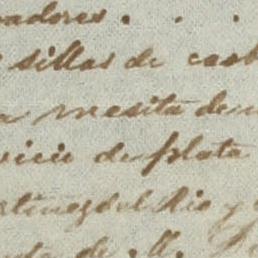 adores . . .
sillas de
mesita de
vicio de plata
rtinez del Rio y
de M.